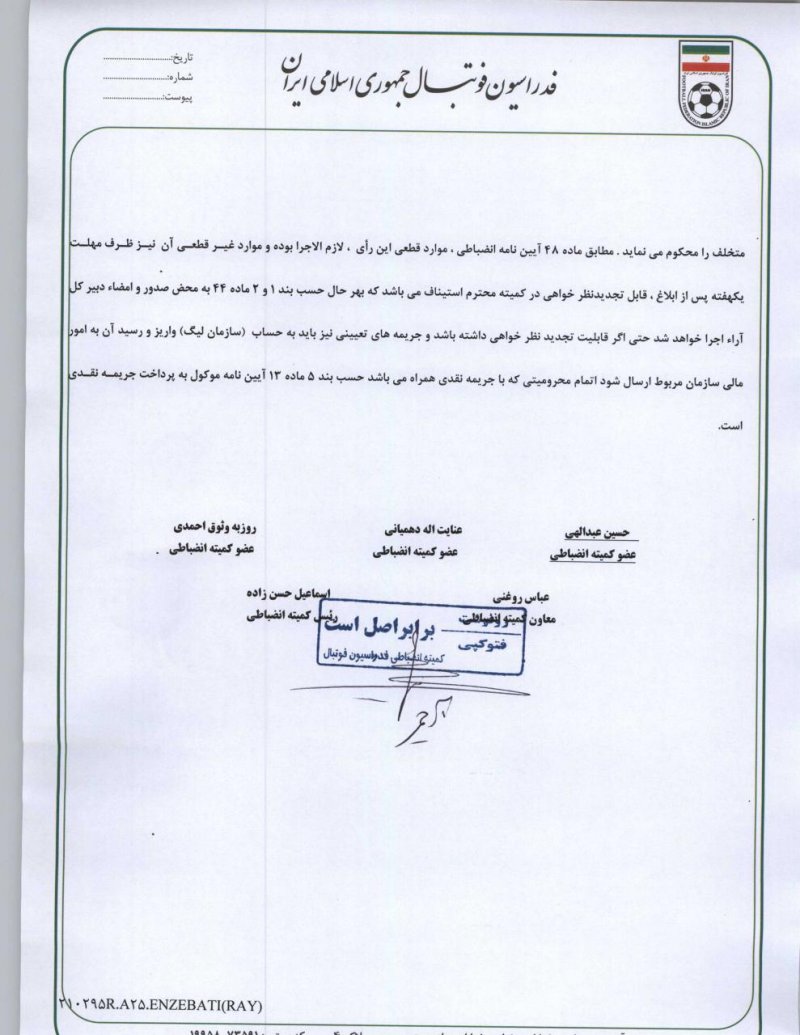 فدراسیون فوتبال جمهوری اسلامی ایران
تاریخ:
شماره:
پیوست:
FOOTBALL FEDERATION ISLAMIC REPUBLIC OF IRAN
متخلف را محکوم می نماید . مطابق ماده ۴۸ آیین نامه انضباطی ، موارد قطعی این رأی ، لازم الاجرا بوده و موارد غیر قطعی آن نیز ظرف مهلت
یکهفته پس از ابلاغ ، قابل تجدیدنظر خواهی در کمیته محترم استیناف می باشد که بهر حال حسب بند ۱ و ۲ ماده ۴۴ به محض صدور و امضاء دبیر کل
آراء اجرا خواهد شد حتی اگر قابلیت تجدید نظر خواهی داشته باشد و جریمه های تعیینی نیز باید به حساب (سازمان لیگ) واریز و رسید آن به امور
مالی سازمان مربوط ارسال شود اتمام محرومیتی که با جریمه نقدی همراه می باشد حسب بند ۵ ماده ۱۳ آیین نامه موکول به پرداخت جریمه نقدی
است.
حسین عبدالهی
عضو کمیته انضباطی
عنایت اله دهمیانی
عضو کمیته انضباطی
روزبه وثوق احمدی
عضو کمیته انضباطی
عباس روغنی
معاون کمیته انضباطی
اسماعیل حسن زاده
رئیس کمیته انضباطی
فتوکپی
برابر اصل است
کمیته انضباطی فدراسیون فوتبال
۲۱۰۲۹۵R.A۲۵.ENZEBATI(RAY)